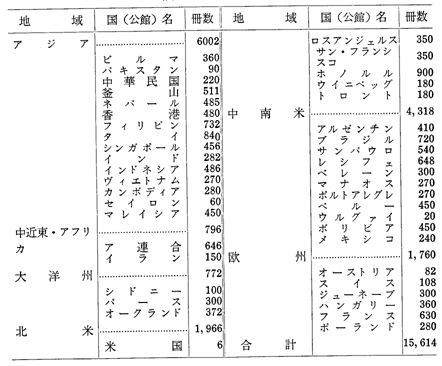 地域 国（公館）名 冊数
アジア 6002
ビルマ 360
パキスタン 90
中華民国 220
釜山 511
ネパール 485
香港 480
フィリピン 732
タイ 840
シンガポール 456
インド 282
インドネシア 486
ヴィエトナム 270
カンボディア 280
セイロン 60
マレイシア 450
中近東・アフリカ 796
ア連合 646
イラン 150
大洋州 772
シドニー 100
パース 300
オークランド 372
北米 1,966
米国 6
地域 国（公館）名 冊数
ロスアンジェルス 350
サン・フランシスコ 350
ホノルル 900
ウイニペッグ 180
トロント 180
中南米 4,318
アルゼンチン 410
ブラジル 720
サンパウロ 540
レシフェ 648
ベレーン 300
マナオス 270
ポルトアレグレ 270
ペルー 450
ウルグァイ 20
ボリビア 450
メキシコ 240
欧州 1,760
オーストリア 82
スイス 108
ジューネーブ 300
ハンガリー 360
フランス 630
ポーランド 280
合計 15,614